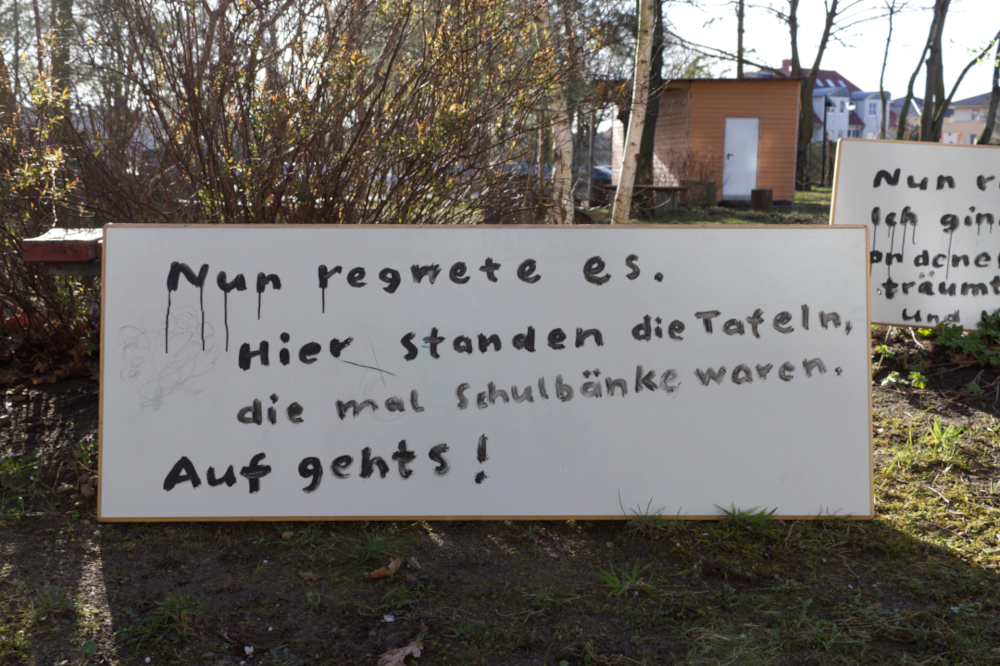 Nun regnete es.
Hier standen die Tafeln,
die mal Schulbänke waren.
Auf gehts!
Nun
Ich
träumt
und